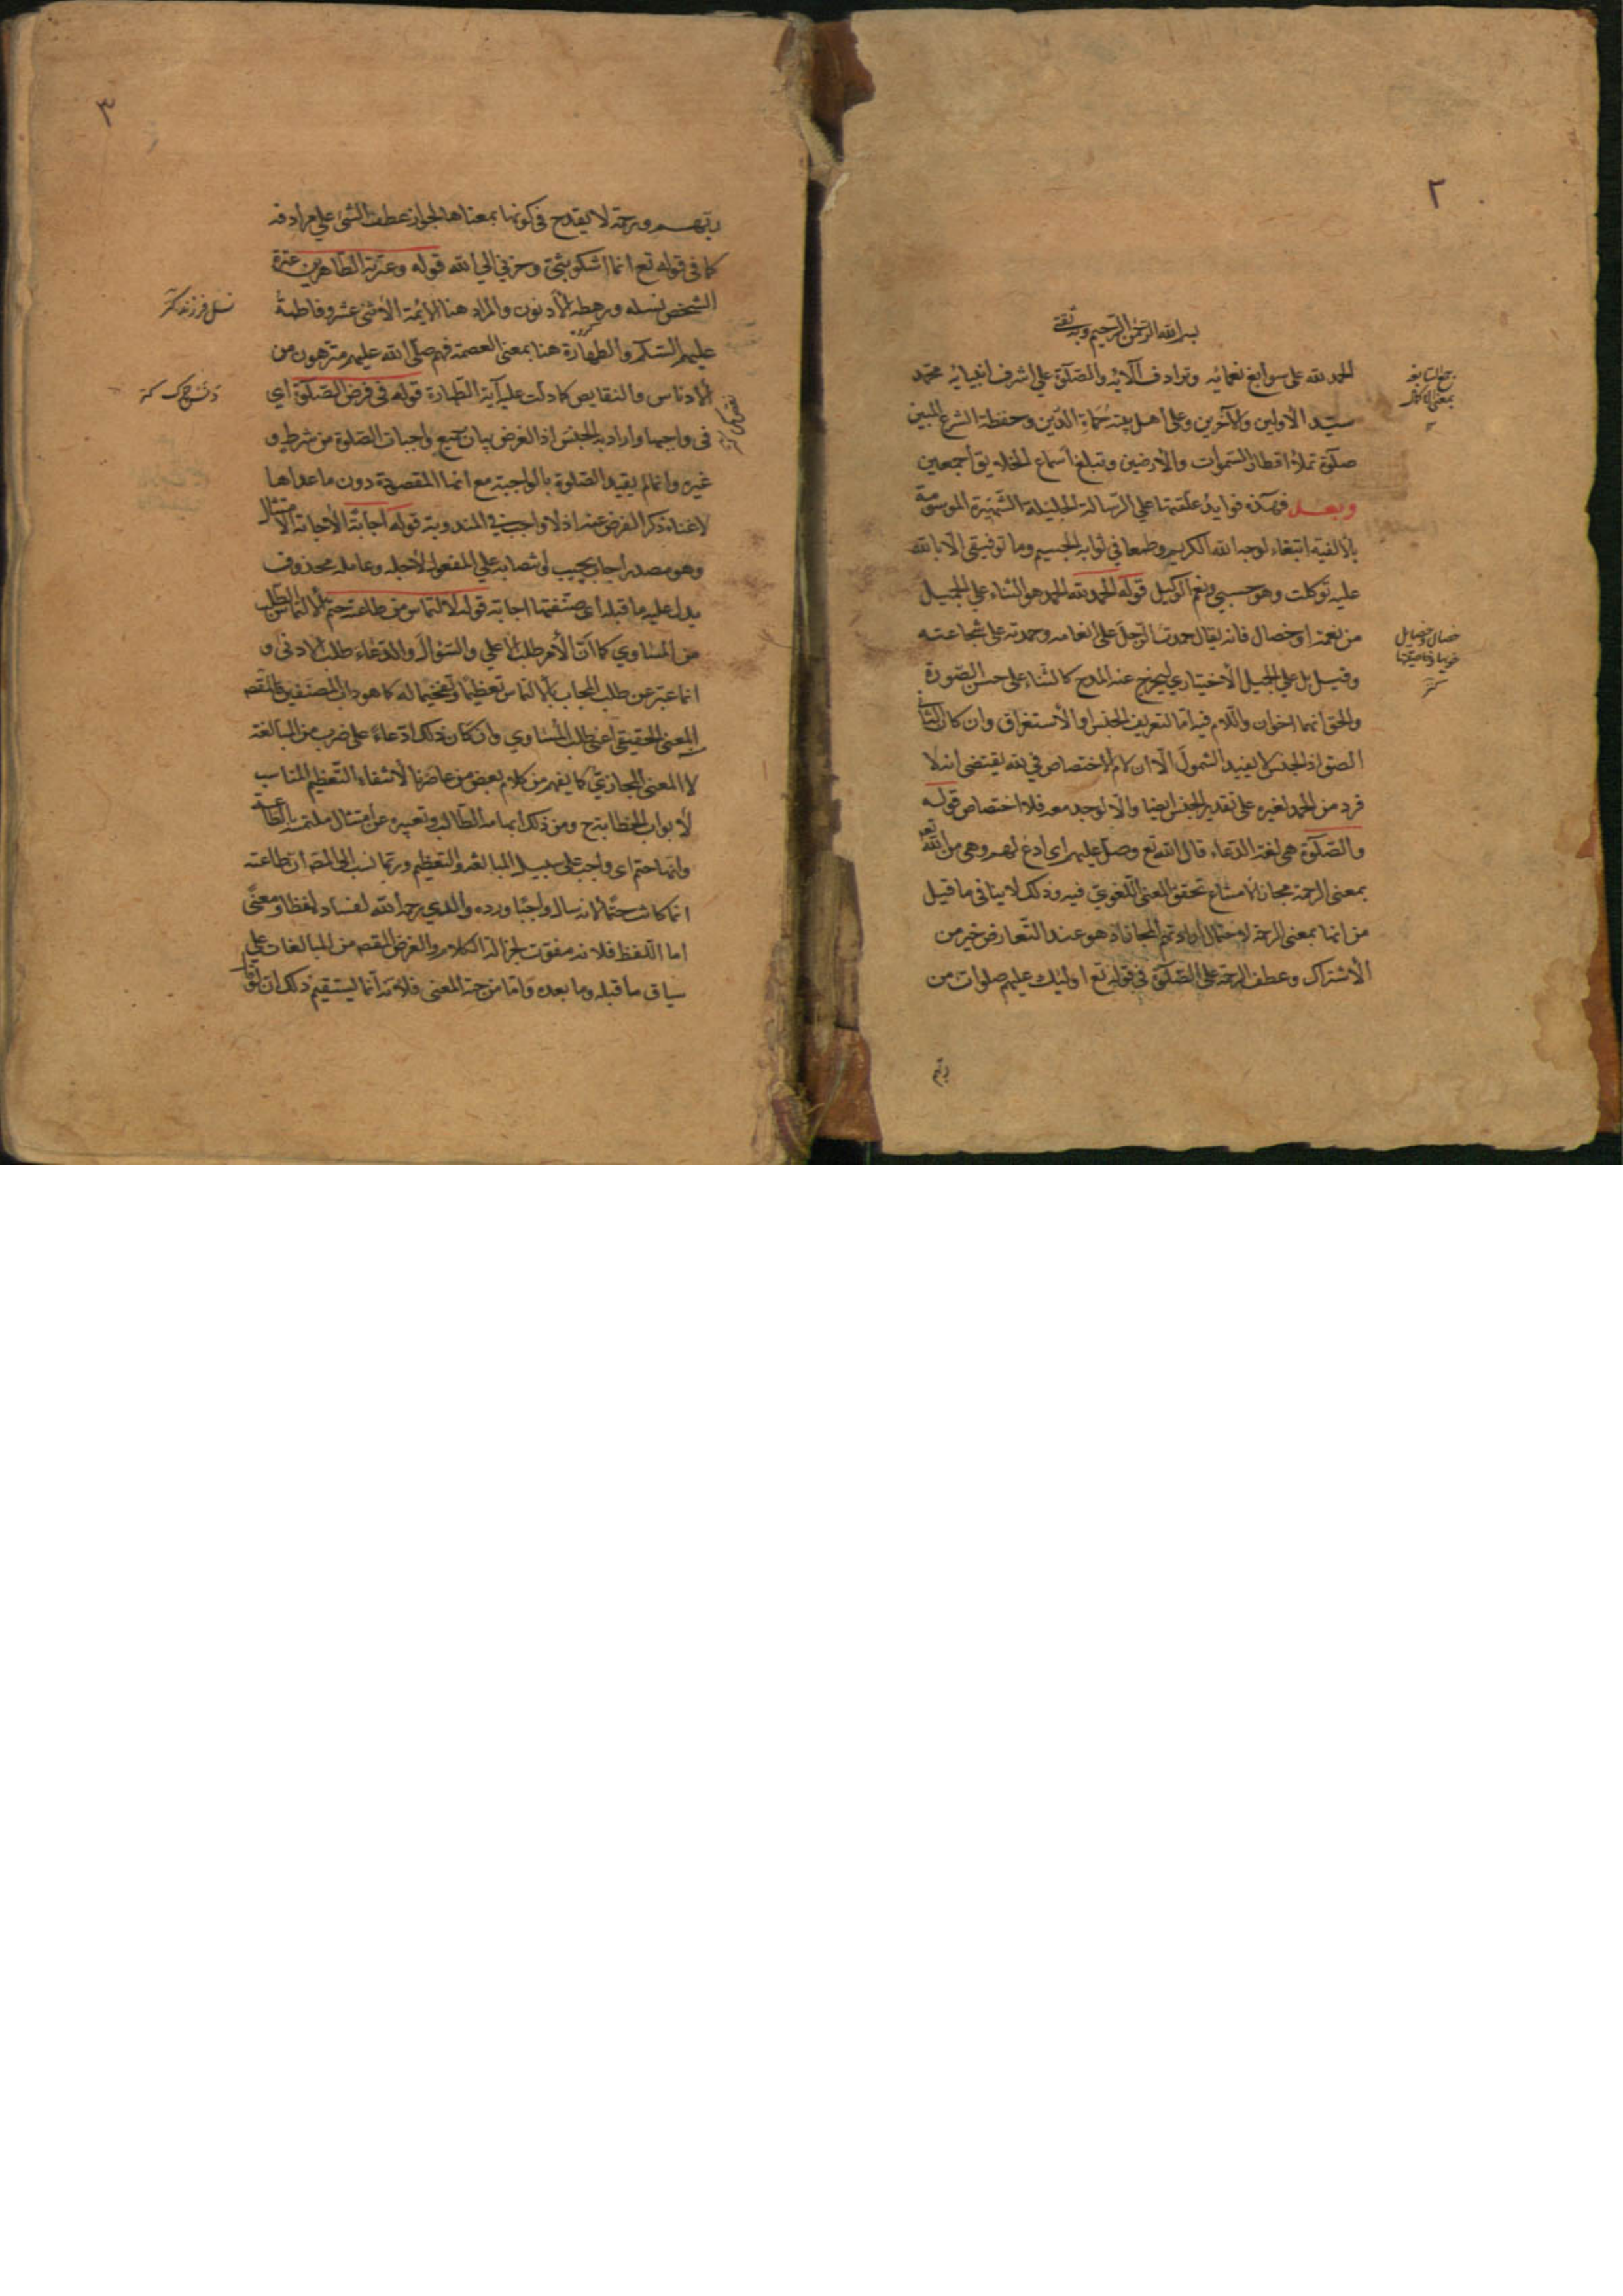 ٢
بسم الله الرحمن الرحيم وبه ثقتي
الحمد لله على سوابغ نعمائه وترادف آلائه والصلوة علي اشرف انبيائه محمّد
سيّد الأولين والآخرين وعلى اهل بيته حُماة الدّين وحفظة الشرع المبين
صلوة تملأ اقطار السّموات والأرضين وتبلغ اسماع الخلايق أجمعين
وبعد فهذه فوايد علقتها علي الرّسالة الجليلة الشّهيرة الموسومة
بالألفية ابتغاء لوجه الله الكريم وطمعا في ثوابه الجسيم وما توفيقى الّا بالله
عليه توكلت وهو حسبي ونعم الوكيل قوله الحمد لله الحمد هو الثناء علي الجميل
من نعمة او خصال فانه يقال حمدت الرّجل على انعامه وحمدته على شجاعته
وقيل بل علي الجميل الأختياري ليخرج عنه المدح كالثناء على حسن الصّورة
والحق انهما اخوان واللام فيه امّا لتعريف الجنس او الأستغراق وان كان الثاني
الصق اذ الجنس لا يفيد الشمول الّا ان لام الاختصاص في لله يقتضى انه لا
فرد من الحمد لغيره على تقدير الجنس ايضا والّا لوجد معه فلا اختصاص قوله
والصّلوة هي لغة الدّعاء قال الله تع وصلّ عليهم اى ادع لهم وهى من الله تع
بمعنى الرحمة مجازا لأمتناع تحقق المعنى اللّغويّ فيه وذلك لا ينافي ما قيل
من انها بمعنى الرحمة لاحتمال ارادتهم المجاز اذ هو عند التّعارض خير من
الأشتراك وعطف الرحمة على الصّلوة في قوله تع اوليك عليهم صلوات من
ربّهم
جمع السابغه
بمعنى الكامل
خصال وخصايل
٣
ربّهم ورحمة لا يقدح في كونها بمعناها لجواز عطف الشئ علي مرادفه
كما في قوله تع انما اشكو بثّي وحزني الي الله قوله وعترته الطّاهرين عترة
الشخص نسله ورهطه الأدنون والمراد هنا الأيّمة الأثنى عشر وفاطمة
عليهم السّلام والطهارة هنا بمعنى العصمة فهم صلّى الله عليهم منزهون من
الأدناس والنقايص كما دلت عليه آية الطّهارة قوله في فرض الصّلوة اي
فى واجبها واراد به الجنس اذ الغرض بيان جميع واجبات الصّلوة من شرط و
غيره وانما لم يقيد الصّلوة بالواجبة مع انها المقصودة دون ماعداها
لاغناء ذكر الفرض عنه اذ لا واجب في المندوبة قوله اجابة الأجابة الامتثال
وهو مصدر اجاب يجيب انتصابه علي المفعول لأجله وعامله محذوف
يدل عليه ما قبله اى صنّفتها اجابة قوله لالتماس من طاعته حتم الالتماس الطلب
من المساوي كما انّ الأمر طلب الأعلي والسّؤال والدّعاء طلب الأدنى و
انما عبّر عن طلب المجاب بالالتماس تعظيمًا وتفخيما له كما هو داب المصنّفين فالمقصد
المعنى الحقيقي اعنى طلب المساوي وان كان ذلك ادّعاءً على ضرب من المبالغة
لا المعنى المجازيّ كما يفهم من كلام بعض من عاصرنا لأنتفاء التّعظيم المناسب
لأبواب الخطابة ح ومن ذلك ابهامه الطّالب وتعبيره عن امتثال ملتمسه بالطّاعة
وانها حتم اى واجب على سبيل المبالغة والتّعظيم وربّما نسب الى المصّ أن طاعته
انما كانت حتمًا لأنه سال واجبًا ورده والدي رحمه الله لفساده لفظا ومعنًى
اما اللّفظ فلانه مفوّت لجزالة الكلام والغرض المقصد من المبالغات علي
سياق ما قبله وما بعده وامّا من جهة المعنى فلانّه انّما يستقيم ذلك ان لو
نسل فرزند